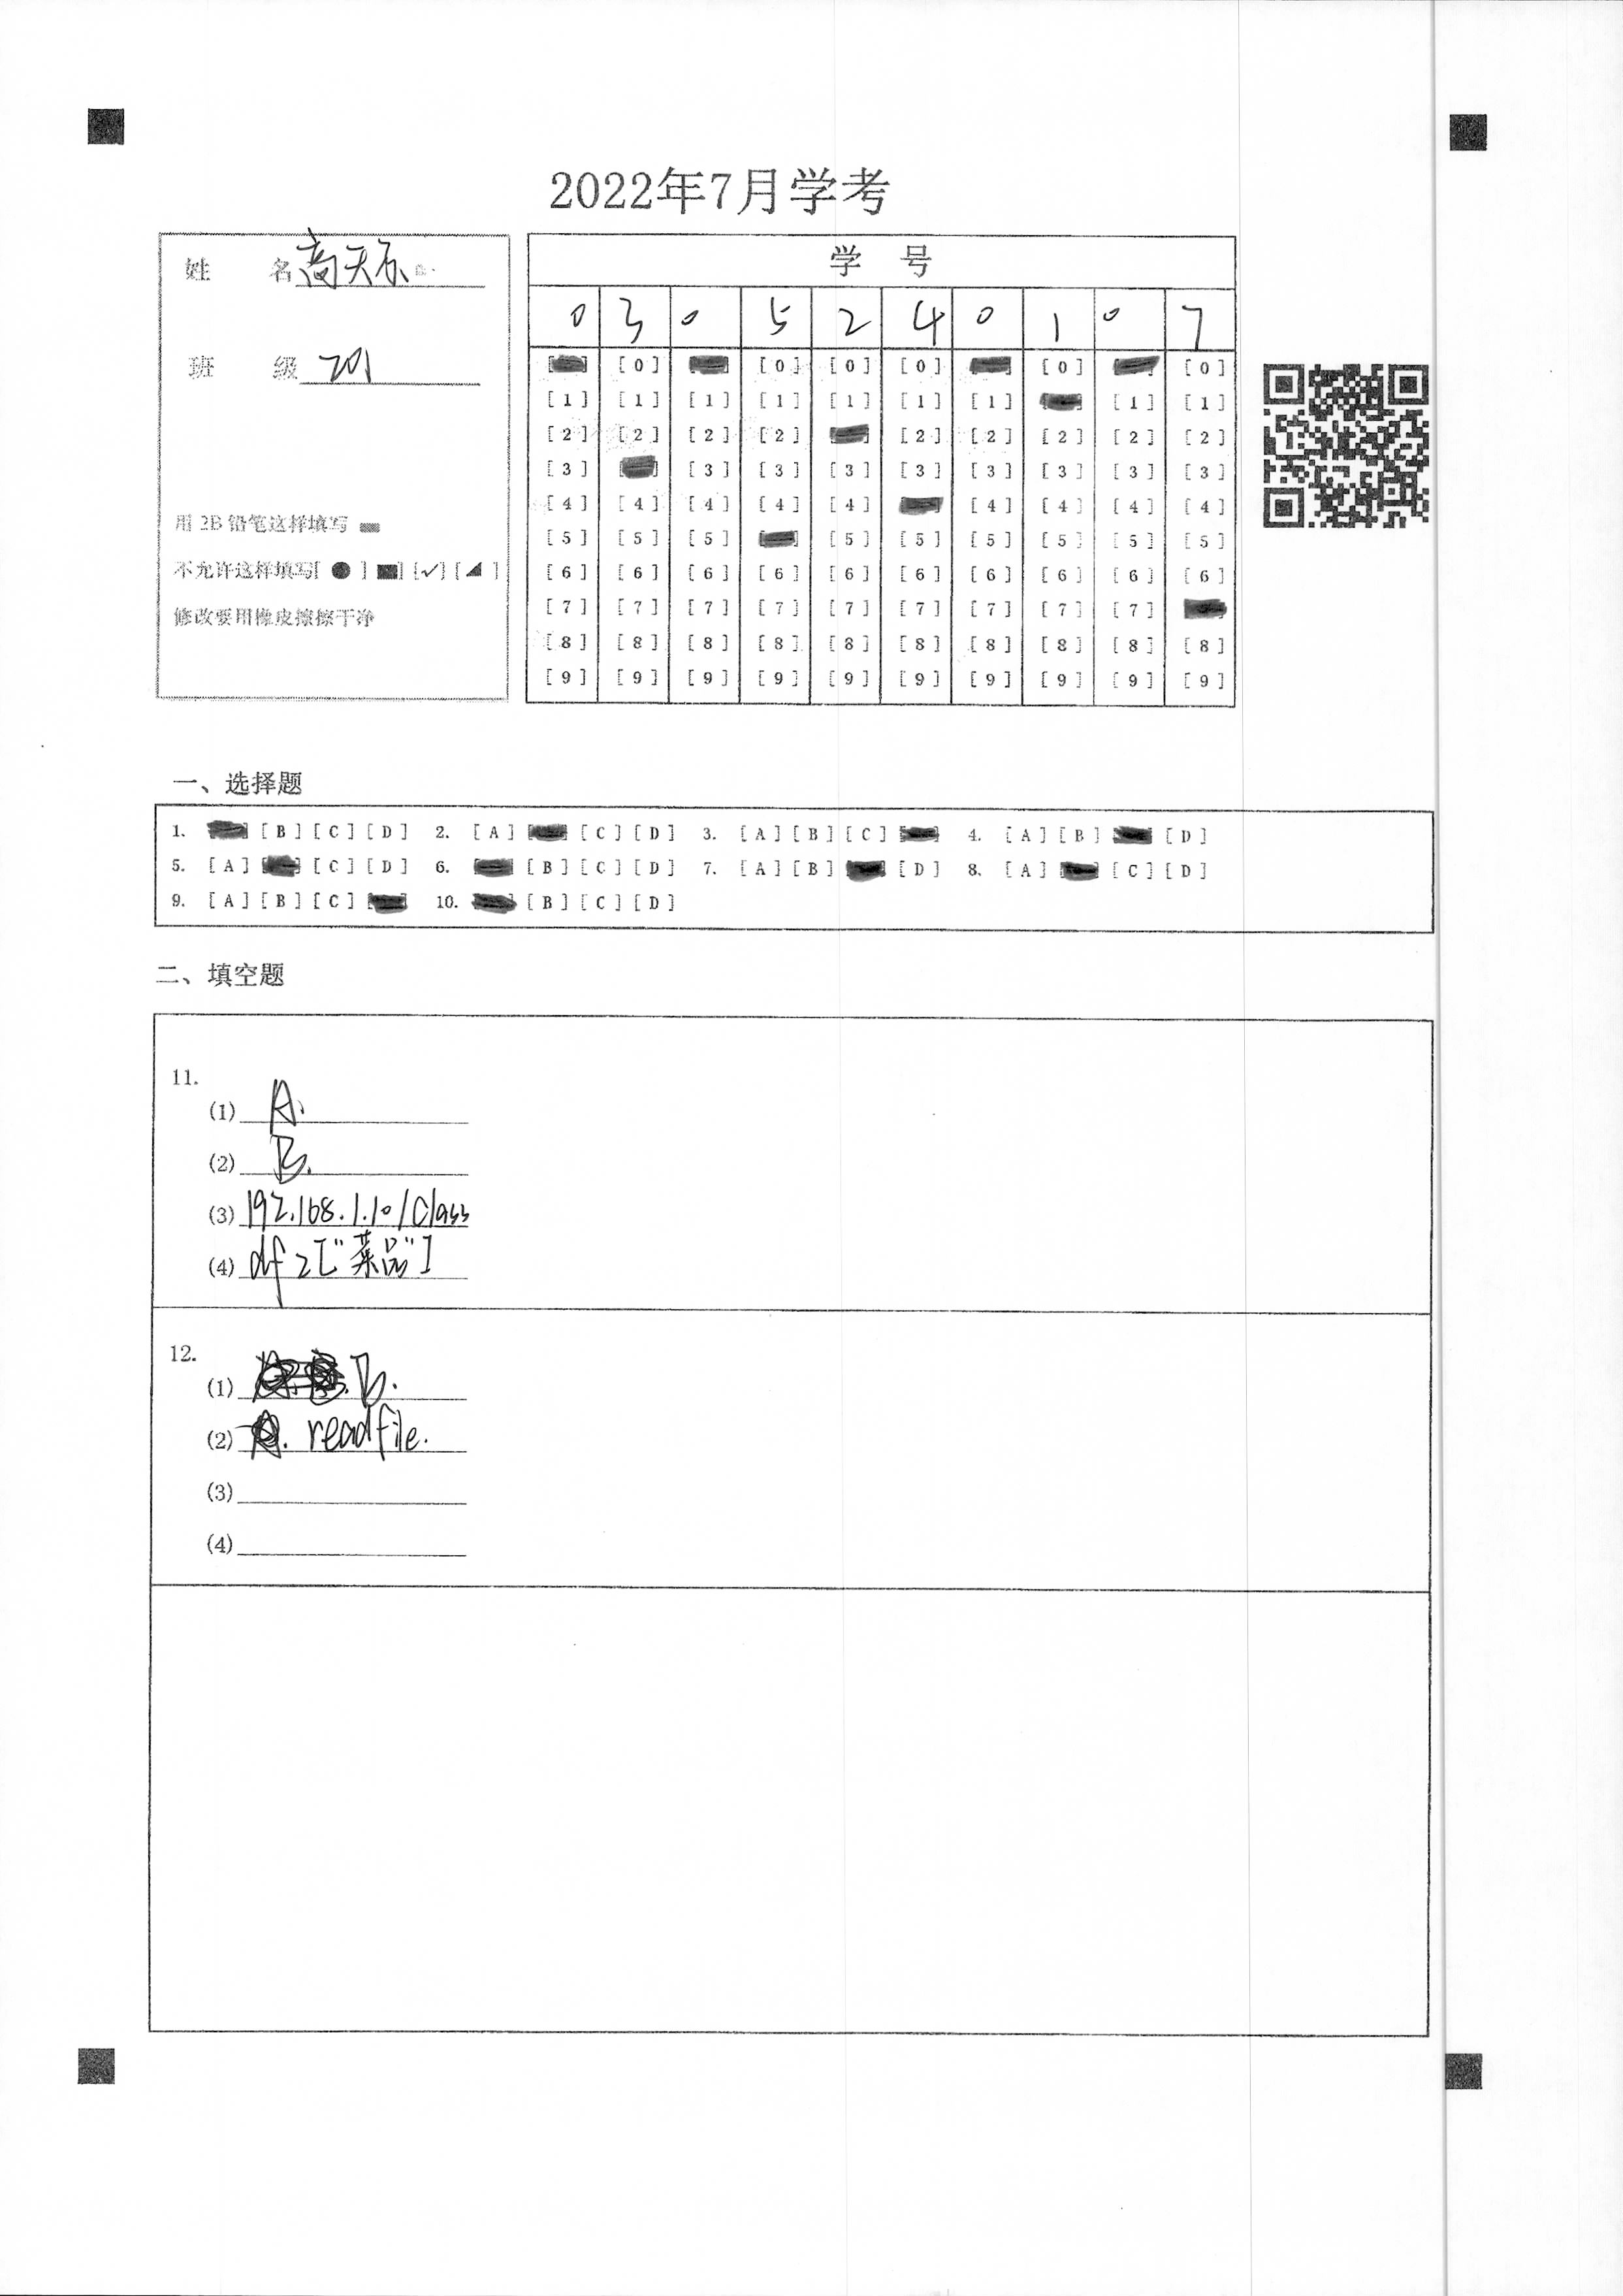 2022年7月学考
姓 名 高天乐
班 级 201
用 2B 铅笔这样填写
不允许这样填写[ ● ] [■] [✓] [◢ ]
修改要用橡皮擦擦干净
学 号
0 3 0 5 2 4 0 1 0 7
[0] [0] [0] [0] [0] [0]
[1] [1] [1] [1] [1] [1] [1] [1] [1]
[2] [2] [2] [2] [2] [2] [2] [2] [2]
[3] [3] [3] [3] [3] [3] [3] [3] [3]
[4] [4] [4] [4] [4] [4] [4] [4] [4]
[5] [5] [5] [5] [5] [5] [5] [5] [5]
[6] [6] [6] [6] [6] [6] [6] [6] [6] [6]
[7] [7] [7] [7] [7] [7] [7] [7] [7]
[8] [8] [8] [8] [8] [8] [8] [8] [8] [8]
[9] [9] [9] [9] [9] [9] [9] [9] [9] [9]
一、选择题
1. [B] [C] [D] 2. [A] [C] [D] 3. [A] [B] [C] 4. [A] [B] [D]
5. [A] [C] [D] 6. [B] [C] [D] 7. [A] [B] [D] 8. [A] [C] [D]
9. [A] [B] [C] 10. [B] [C] [D]
二、填空题
11.
(1) A.
(2) B.
(3) 192.168.1.10/Class
(4) df2["菜品"]
12.
(1) B.
(2) readfile.
(3)
(4)